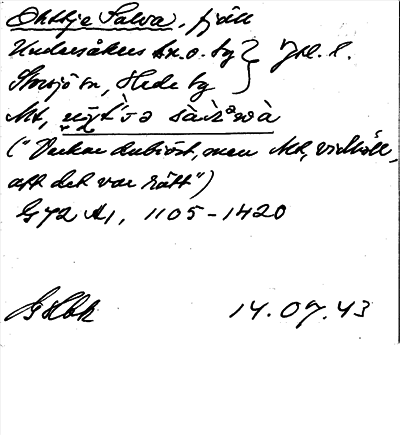 Ohtje Salva, fjäll
Undersåkers sn.o. tg } Jtl. l.
Storsjö sn, Hede tg
Mt,
("Verkar dubiöst, men Mt, vidhöll,
att det var rätt")
G 72 A1, 1105-1420
14.07.43